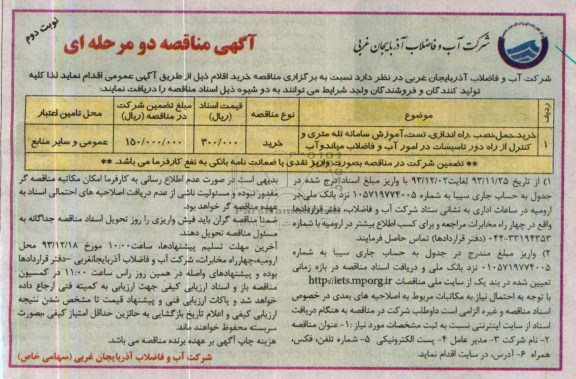 نوبت دوم
آگهی مناقصه دو مرحله ای
شرکت آب و فاضلاب آذربایجان غربی
شرکت آب و فاضلاب آذربایجان غربی در نظر دارد نسبت به برگزاری مناقصه خرید اقلام ذیل از طریق آگهی عمومی اقدام نماید لذا کلیه
تولید کنندگان و فروشندگان واجد شرایط می توانند به دو شیوه ذیل اسناد مناقصه را دریافت نمایند:
ردیف
موضوع
نوع مناقصه
قیمت اسناد (ریال)
مبلغ تضمین شرکت در مناقصه (ریال)
محل تامین اعتبار
۱
خرید،حمل،نصب ،راه اندازی، تست،آموزش سامانه تله متری و
کنترل از راه دور تاسیسات در امور آب و فاضلاب میاندوآب
خرید
۳۰۰/۰۰۰
۱۵۰/۰۰۰/۰۰۰
عمومی و سایر منابع
** تضمین شرکت در مناقصه بصورت واریز نقدی یا ضمانت نامه بانکی به نفع کارفرما می باشد. **
۱) از تاریخ ۹۳/۱۱/۲۵ لغایت ۹۳/۱۲/۰۲ با واریز مبلغ اسناد درج شده در
جدول به حساب جاری سیبا به شماره ۰۱۰۵۷۱۹۷۷۴۰۰۵ نزد بانک ملی،در
ارومیه در ساعات اداری به نشانی ستاد شرکت آب و فاضلاب، دفتر قراردادها
واقع در چهار راه مخابرات مراجعه و برای کسب اطلاع بیشتر در ارومیه با شماره
۰۴۴-۳۳۱۹۴۳۵۳ (دفتر قراردادها) تماس حاصل فرمایند.
۲) واریز مبلغ مندرج در جدول به حساب جاری سیبا به شماره
۰۱۰۵۷۱۹۷۷۴۰۰۵ نزد بانک ملی و دریافت اسناد مناقصه در بازه زمانی
تعیین شده در بند یک از سایت ملی مناقصات http://iets.mporg.ir
با توجه به احتمال نیاز به مکاتبات مربوط به اصلاحیه های بعدی در خصوص
اسناد مناقصه و غیره الزامی است داوطلب شرکت در مناقصه به هنگام دریافت
اسناد از سایت اینترنتی نسبت به ثبت مشخصات مورد نیاز :۱-عنوان مناقصه
۲- نام شرکت ۳- مدیر عامل ۴- پست الکترونیکی ۵- شماره تلفن، فکس،
همراه ۶- آدرس، در سایت اقدام نماید.
بدیهی است در صورت عدم اطلاع رسانی به کارفرما امکان مکاتبه مناقصه گر
مقدور نبوده و مسئولیت ناشی از عدم دریافت اصلاحیه های احتمالی اسناد به
عهده مناقصه گر خواهد بود.
ضمنا مناقصه گران باید فیش واریزی را روز تحویل اسناد مناقصه جداگانه به
مسئول مناقصه تحویل دهند.
آخرین مهلت تسلیم پیشنهادها، ساعت ۱۰:۰۰ مورخ ۹۳/۱۲/۱۸ محل
ارومیه،چهارراه مخابرات، شرکت آب و فاضلاب آذربایجانغربی –دفتر قراردادها
بوده و پیشنهادهای واصله در همین روز راس ساعت ۱۱:۰۰ در کمسیون
مناقصه باز و اسناد ارزیابی کیفی جهت ارزیابی به کمیته فنی ارجاع داده
خواهد شد و پاکات ارزیابی فنی و پیشنهاد قیمت تا مشخص شدن نتیجه
ارزیابی کیفی و اعلام تاریخ بازگشایی به حائزین حداقل امتیاز کیفی بصورت
سربسته محفوظ خواهند ماند.
هزینه چاپ آگهی بر عهده برنده مناقصه می باشد.
شرکت آب و فاضلاب آذربایجان غربی (سهامی خاص)